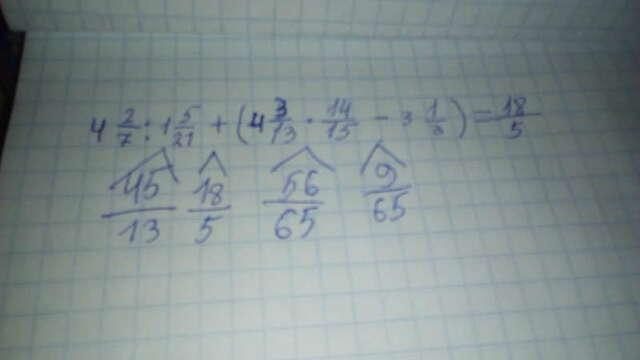 4 2/7 : 1 5/21 + (4 3/13 · 14/15 - 3 1/3) = 18/5
45/13 18/5 56/65 9/65